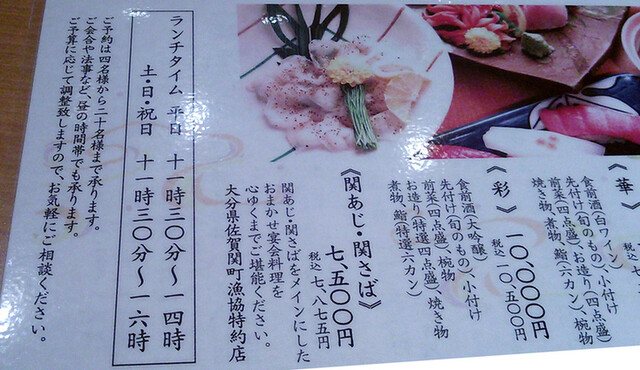 《華
食前酒(白ワイン)
先付け(旬のもの)、小付け
前菜(四点盛)お造り(四点盛)
焼き物、煮物、鮨(六カン)、椀物
《彩》 一〇、〇〇〇円
税込 一〇、五〇〇円
食前酒(大吟醸)
先付け(旬のもの)、小付け
前菜(四点盛)、椀物
お造り(特選四点盛)、焼き物
煮物、鮨(特選六カン)
《関あじ・関さば》
七、五〇〇円
税込 七、八七五円
関あじ・関さばをメインにした
おまかせ宴会料理を
心ゆくまでご堪能ください。
大分県佐賀関町漁協特約店
ランチタイム 平日 十一時三〇分〜一四時
土・日・祝日 十一時三〇分〜一六時
ご予約は四名様から二十名様まで承ります。
ご会合や法事など、昼の時間帯でも承ります。
ご予算に応じて調整致しますので、お気軽にご相談ください。